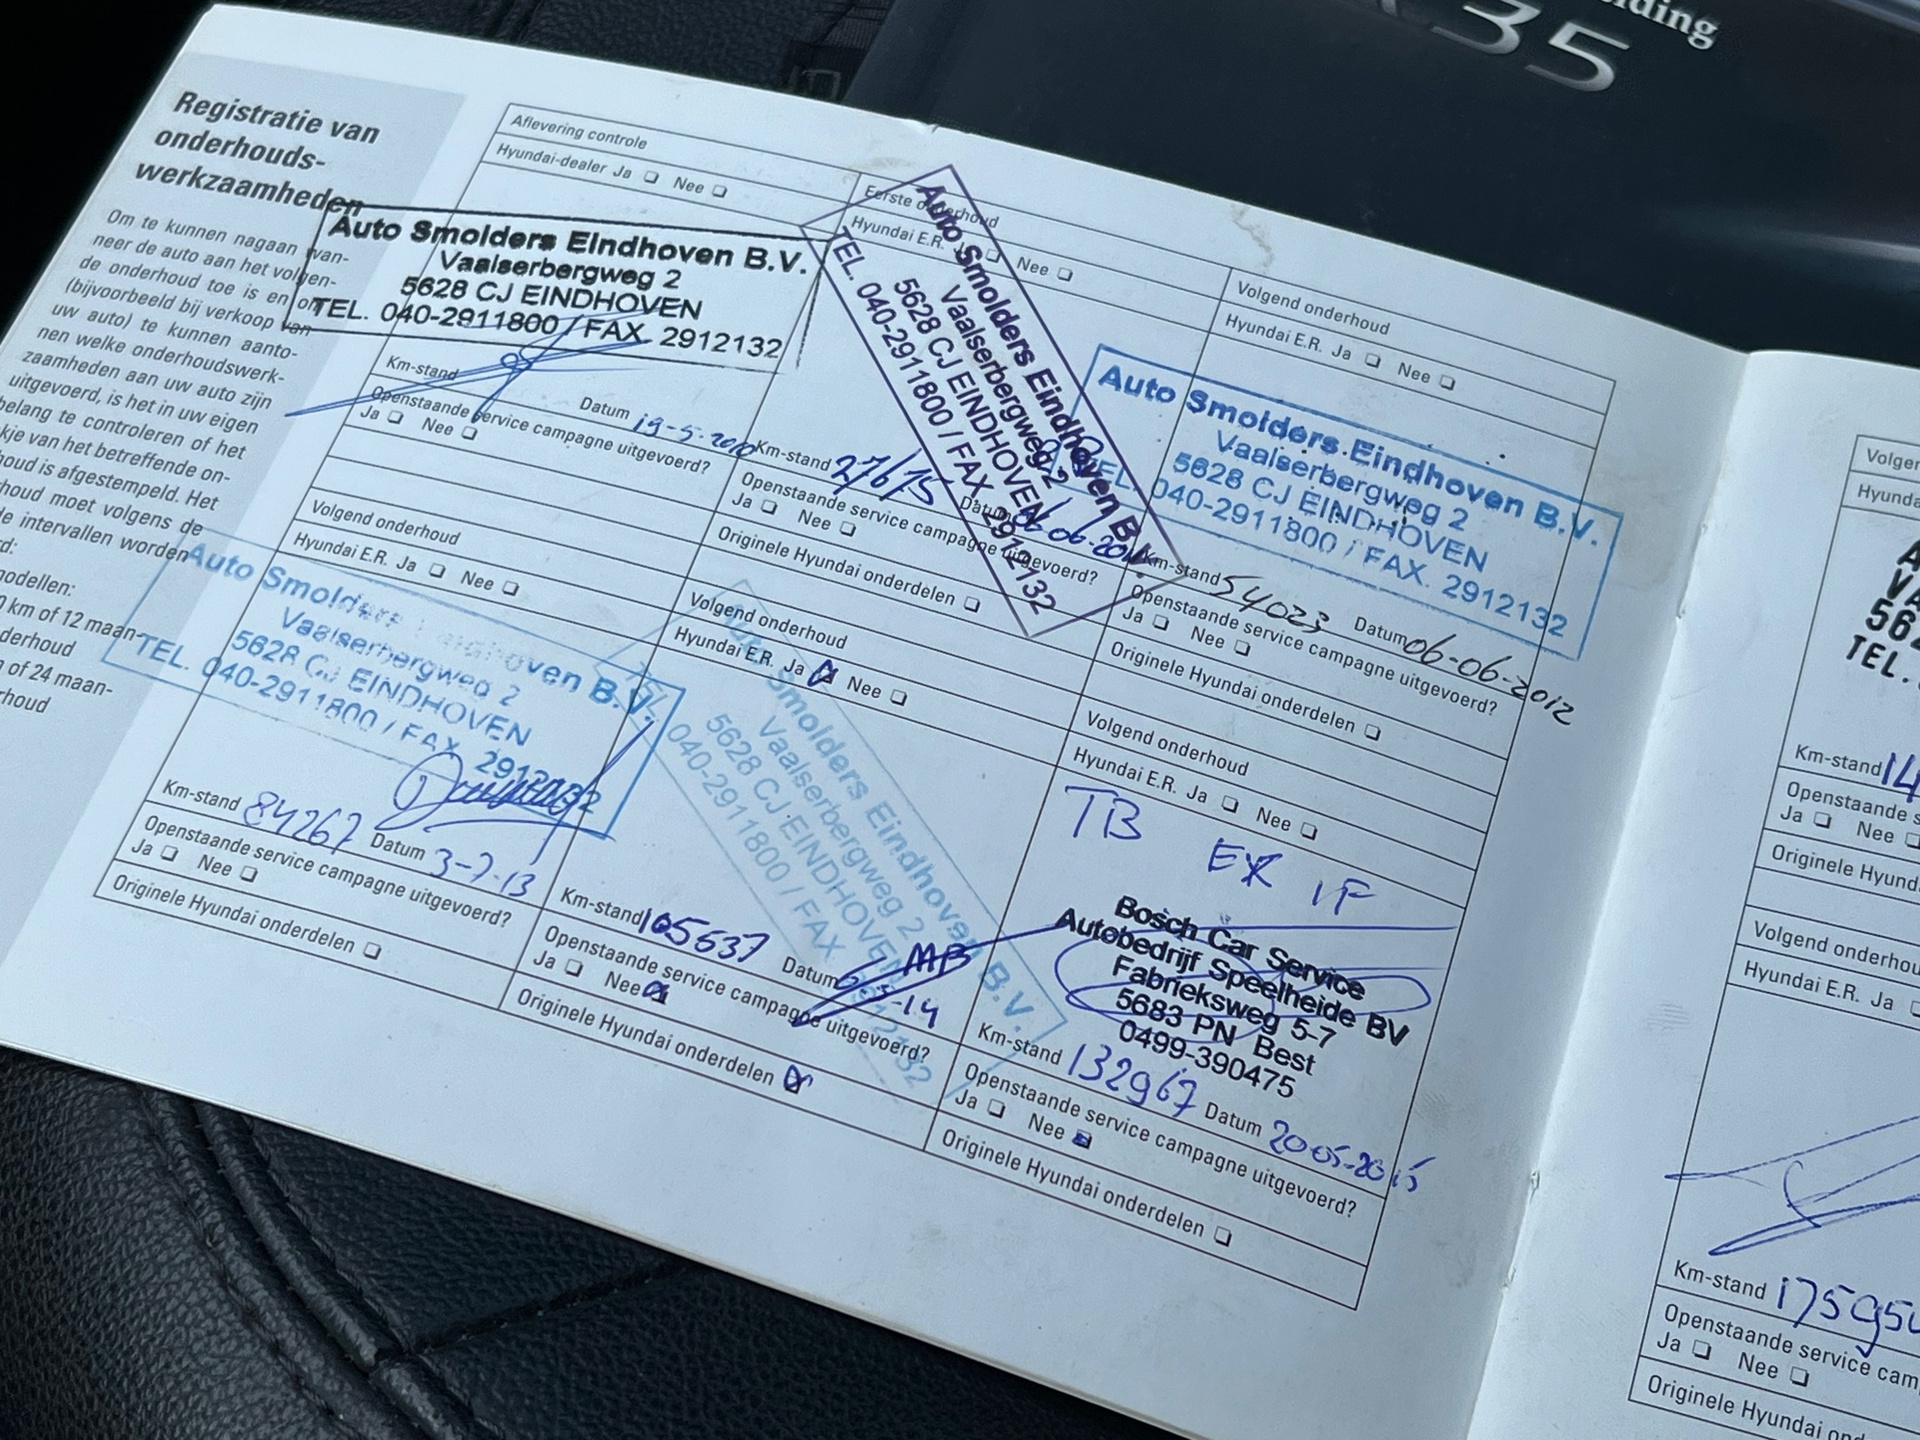 35
Registratie van
onderhouds-
werkzaamheden
Om te kunnen nagaan wan-
neer de auto aan het volgen-
de onderhoud toe is en om
(bijvoorbeeld bij verkoop van
uw auto) te kunnen aanto-
nen welke onderhoudswerk-
zaamheden aan uw auto zijn
uitgevoerd, is het in uw eigen
belang te controleren of het
van het betreffende on-
is afgestempeld. Het
moet volgens de
intervallen worden
km of 12 maan-
of 24 maan-
Aflevering controle
Hyundai-dealer Ja ❏ Nee ❏
Auto Smolders Eindhoven B.V.
Vaalserbergweg 2
5628 CJ EINDHOVEN
TEL. 040-2911800 / FAX 2912132
Km-stand
Datum 19-5-2010
Openstaande service campagne uitgevoerd?
Ja ❏ Nee ❏
Eerste onderhoud
Hyundai E.R. Ja ❏ Nee ❏
Auto Smolders Eindhoven B.V.
Vaalserbergweg 2
5628 CJ EINDHOVEN
TEL. 040-2911800 / FAX 2912132
Km-stand 27675 Datum
Openstaande service campagne uitgevoerd?
Ja ❏ Nee ❏
Originele Hyundai onderdelen ❏
Volgend onderhoud
Hyundai E.R. Ja ❏ Nee ❏
Auto Smolders Eindhoven B.V.
Vaalserbergweg 2
5628 CJ EINDHOVEN
TEL. 040-2911800 / FAX. 2912132
Km-stand 54023 Datum 06-06-2012
Openstaande service campagne uitgevoerd?
Ja ❏ Nee ❏
Originele Hyundai onderdelen ❏
Volgend onderhoud
Hyundai E.R. Ja ❏ Nee ❏
Auto Smolders Eindhoven B.V.
Vaalserbergweg 2
5628 CJ EINDHOVEN
TEL. 040-2911800 / FAX 2912132
Km-stand 84267 Datum 3-7-13
Openstaande service campagne uitgevoerd?
Ja ❏ Nee ❏
Originele Hyundai onderdelen ❏
Volgend onderhoud
Hyundai E.R. Ja ❏ Nee ❏
Auto Smolders Eindhoven B.V.
Vaalserbergweg 2
5628 CJ EINDHOVEN
TEL. 040-2911800 / FAX 2912132
Km-stand 105637 Datum 6-5-14
Openstaande service campagne uitgevoerd?
Ja ❏ Nee ❏
Originele Hyundai onderdelen ❏
Volgend onderhoud
Hyundai E.R. Ja ❏ Nee ❏
TB EX IF
Bosch Car Service
Autobedrijf Speelheide BV
Fabrieksweg 5-7
5683 PN Best
0499-390475
Km-stand 132967 Datum 20-05-2015
Openstaande service campagne uitgevoerd?
Ja ❏ Nee ❏
Originele Hyundai onderdelen ❏
TEL.
Km-stand
Openstaande
Ja ❏ Nee ❏
Originele
Hyundai E.R. Ja
Km-stand
Openstaande service
Ja ❏ Nee ❏
Originele Hyundai